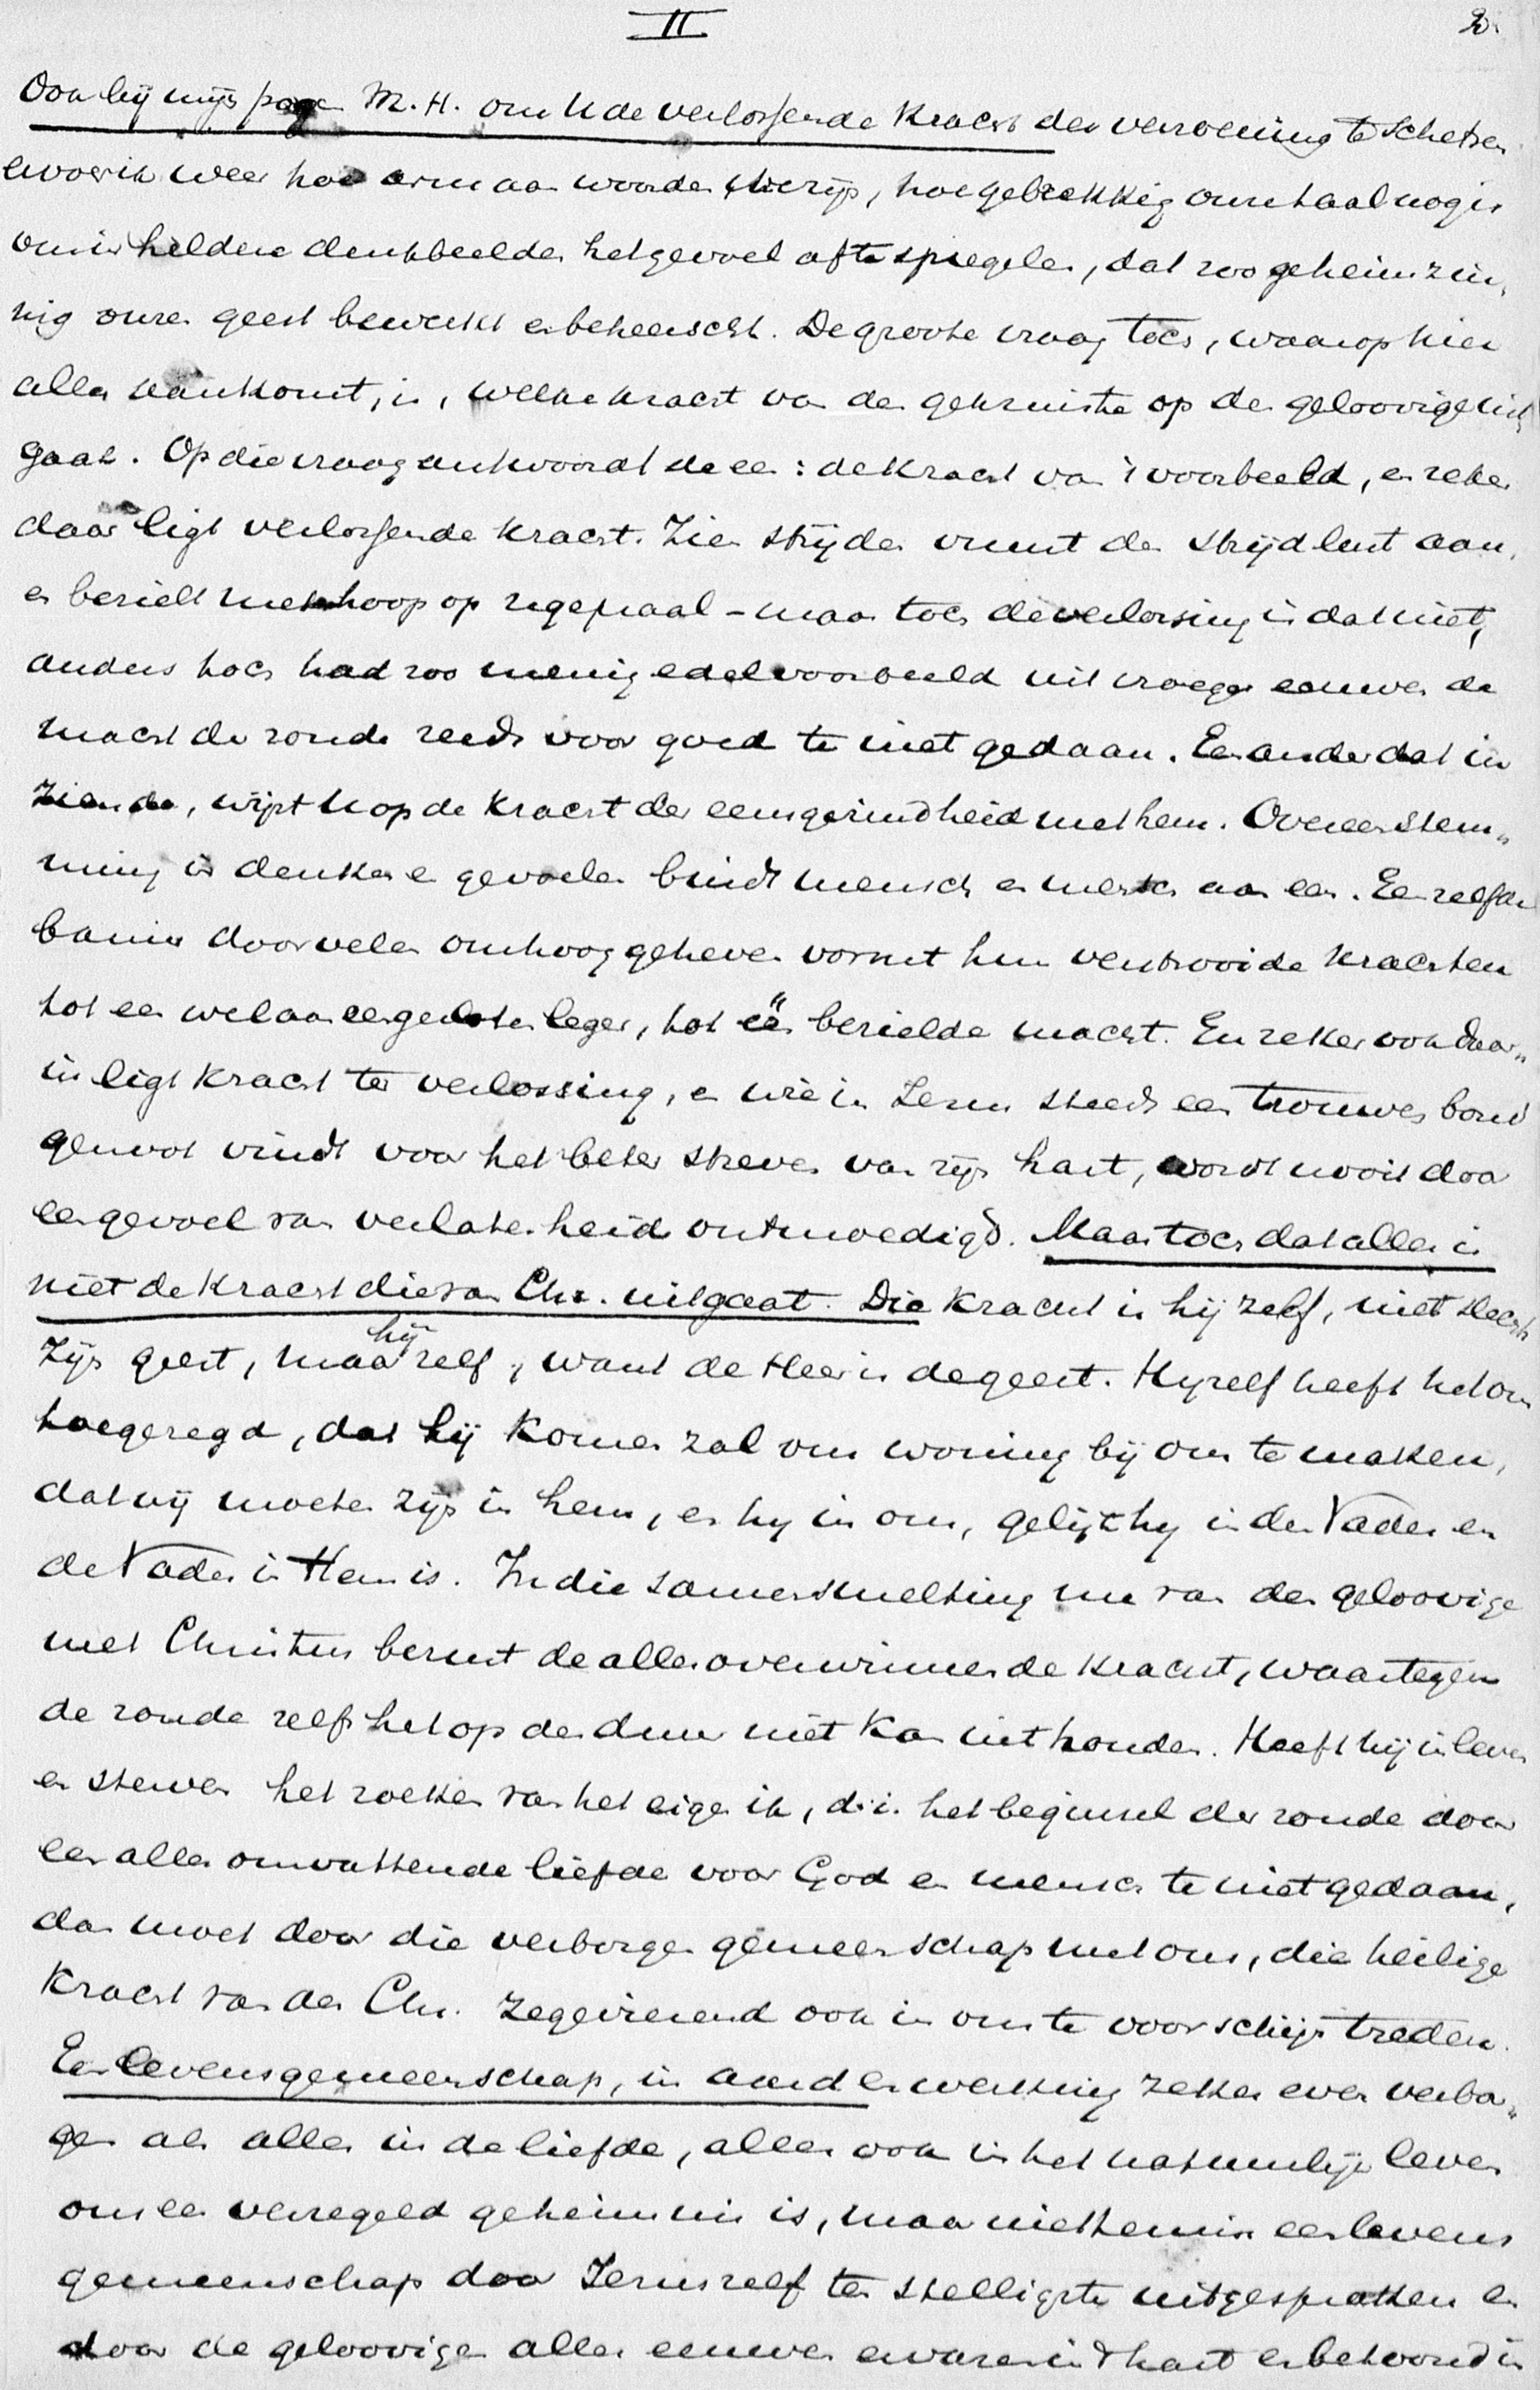 II. 2.
Ook bij mijn pogen M.H. om U de verlossende kracht der verzoening te schetsen
ervoer ik weer hoe arm aan woorden we zijn, hoe gebrekkig onze taal nog is
om in heldere denkbeelden het gevoel af te spiegelen, dat zoo geheimzin„
nig onzen geest bewerkt en beheerscht. De groote vraag toch, waarop hier
alles aankomt, is, welke kracht van den gekruiste op den geloovige uit„
gaat. Op die vraag antwoordt de een: de kracht van 't voorbeeld, en zeker
daar ligt verlossende kracht. Zien strijden vuurt den strijdlust aan,
en bezielt met hoop op zegepraal – maar toch de verlossing is dat niet,
anders toch had zoo menig edel voorbeeld uit vroeger eeuwen de
macht der zonde reeds voor goed te niet gedaan. Een ander dat in
ziende, wijst U op de kracht der eensgezindheid met hem. Overeenstem„
ming in denken en gevoelen bindt mensch en mensch aan een. Eenzelfde
banier door velen omhoog geheven vormt hun verstrooide krachten
tot een wel aaneengesloten leger, tot één bezielde macht. En zeker ook daar„
in ligt kracht ter verlossing, en wie in Jezus steeds een trouwen bond
genoot vindt voor het beter streven van zijn hart, wordt nooit door
een gevoel van verlatenheid ontmoedigd. Maar toch dat alles is
niet de kracht die van Chr. uitgaat. Die kracht is hij zelf, niet slechts
zijn geest, maar hij zelf, want de Heer is de geest. Hijzelf heeft het ons
toegezegd, dat hij komen zal om woning bij ons te maken,
dat wij moeten zijn in hem, en hij in ons, gelijk hij in den Vader en
de Vader in Hem is. In die samensmelting nu van den geloovige
met Christus berust de alles overwinnende kracht, waartegen
de zonde zelfs het op den duur niet kan uithouden. Heeft hij in leven
en sterven het zoeken van het eigen ik, d.i. het beginsel der zonde door
een alles omvattende liefde voor God en mensch te niet gedaan,
dan moet door die verborgen gemeenschap met ons, die heilige
kracht van den Chr. zegevierend ook in ons te voorschijn treden.
Een levensgemeenschap, in aard en werking zeker even verbor„
gen als alles in de liefde, alles ook in het natuurlijk leven
ons een verzegeld geheimnis is, maar niettemin een levens
gemeenschap door Jezus zelf ten stelligste uitgesproken en
door de geloovigen aller eeuwen ervaren in 't hart en betoond in